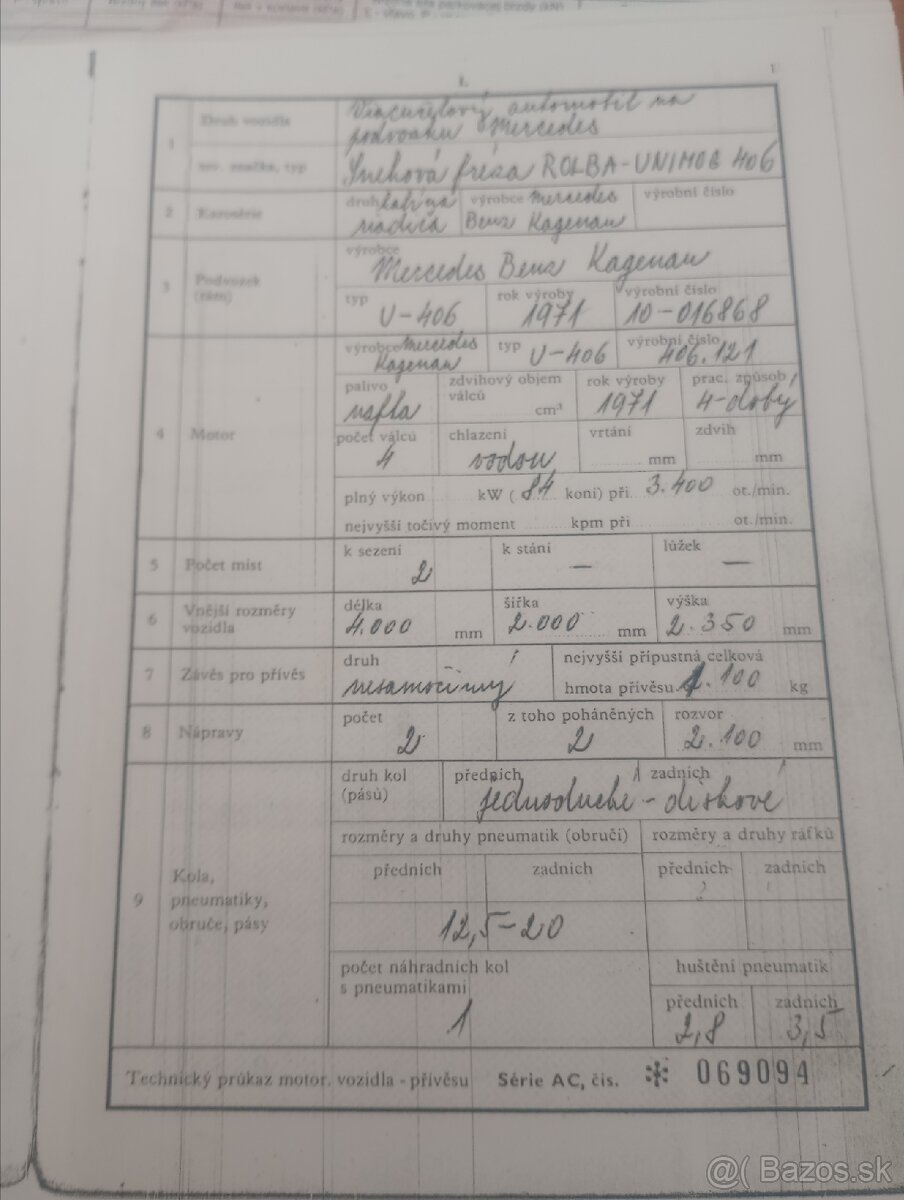 1.
1
Druh vozidla
Viacúčelový automobil na
podvozku Mercedes
1
tov. značka, typ
Snehová fréza ROLBA-UNIMOG 406
2
Karosérie
druh
výrobce Mercedes
Benz Kagenau
výrobní číslo
3
Podvozek
(rám)
výrobce
Mercedes Benz Kagenau
typ
U-406
rok výroby
1971
výrobní číslo
10-016868
4
Motor
výrobce Mercedes
Kagenau
typ U-406
výrobní číslo
406.121
palivo
nafta
zdvihový objem
válců
cm³
rok výroby
1971
prac. způsob
4-dobý
počet válců
4
chlazení
vodou
vrtání
mm
zdvih
mm
plný výkon kW ( 84 koní) při 3.400 ot./min.
nejvyšší točivý moment kpm při ot./min.
5
Počet míst
k sezení
2
k stání
—
lůžek
—
6
Vnější rozměry
vozidla
délka
4.000 mm
šířka
2.000 mm
výška
2.350 mm
7
Závěs pro přívěs
druh
nesamočinný
nejvyšší přípustná celková
hmota přívěsu 1.100 kg
8
Nápravy
počet
2
z toho poháněných
2
rozvor
2.100 mm
9
Kola,
pneumatiky,
obruče, pásy
druh kol
(pásů)
předních zadních
jednoduché - diskové
rozměry a druhy pneumatik (obručí)
rozměry a druhy ráfků
předních
zadních
předních
zadních
12,5-20
počet náhradních kol
s pneumatikami
1
huštění pneumatik
předních
2,8
zadních
3,5
Technický průkaz motor. vozidla - přívěsu Série AC, čis. * 069094
@( Bazos.sk